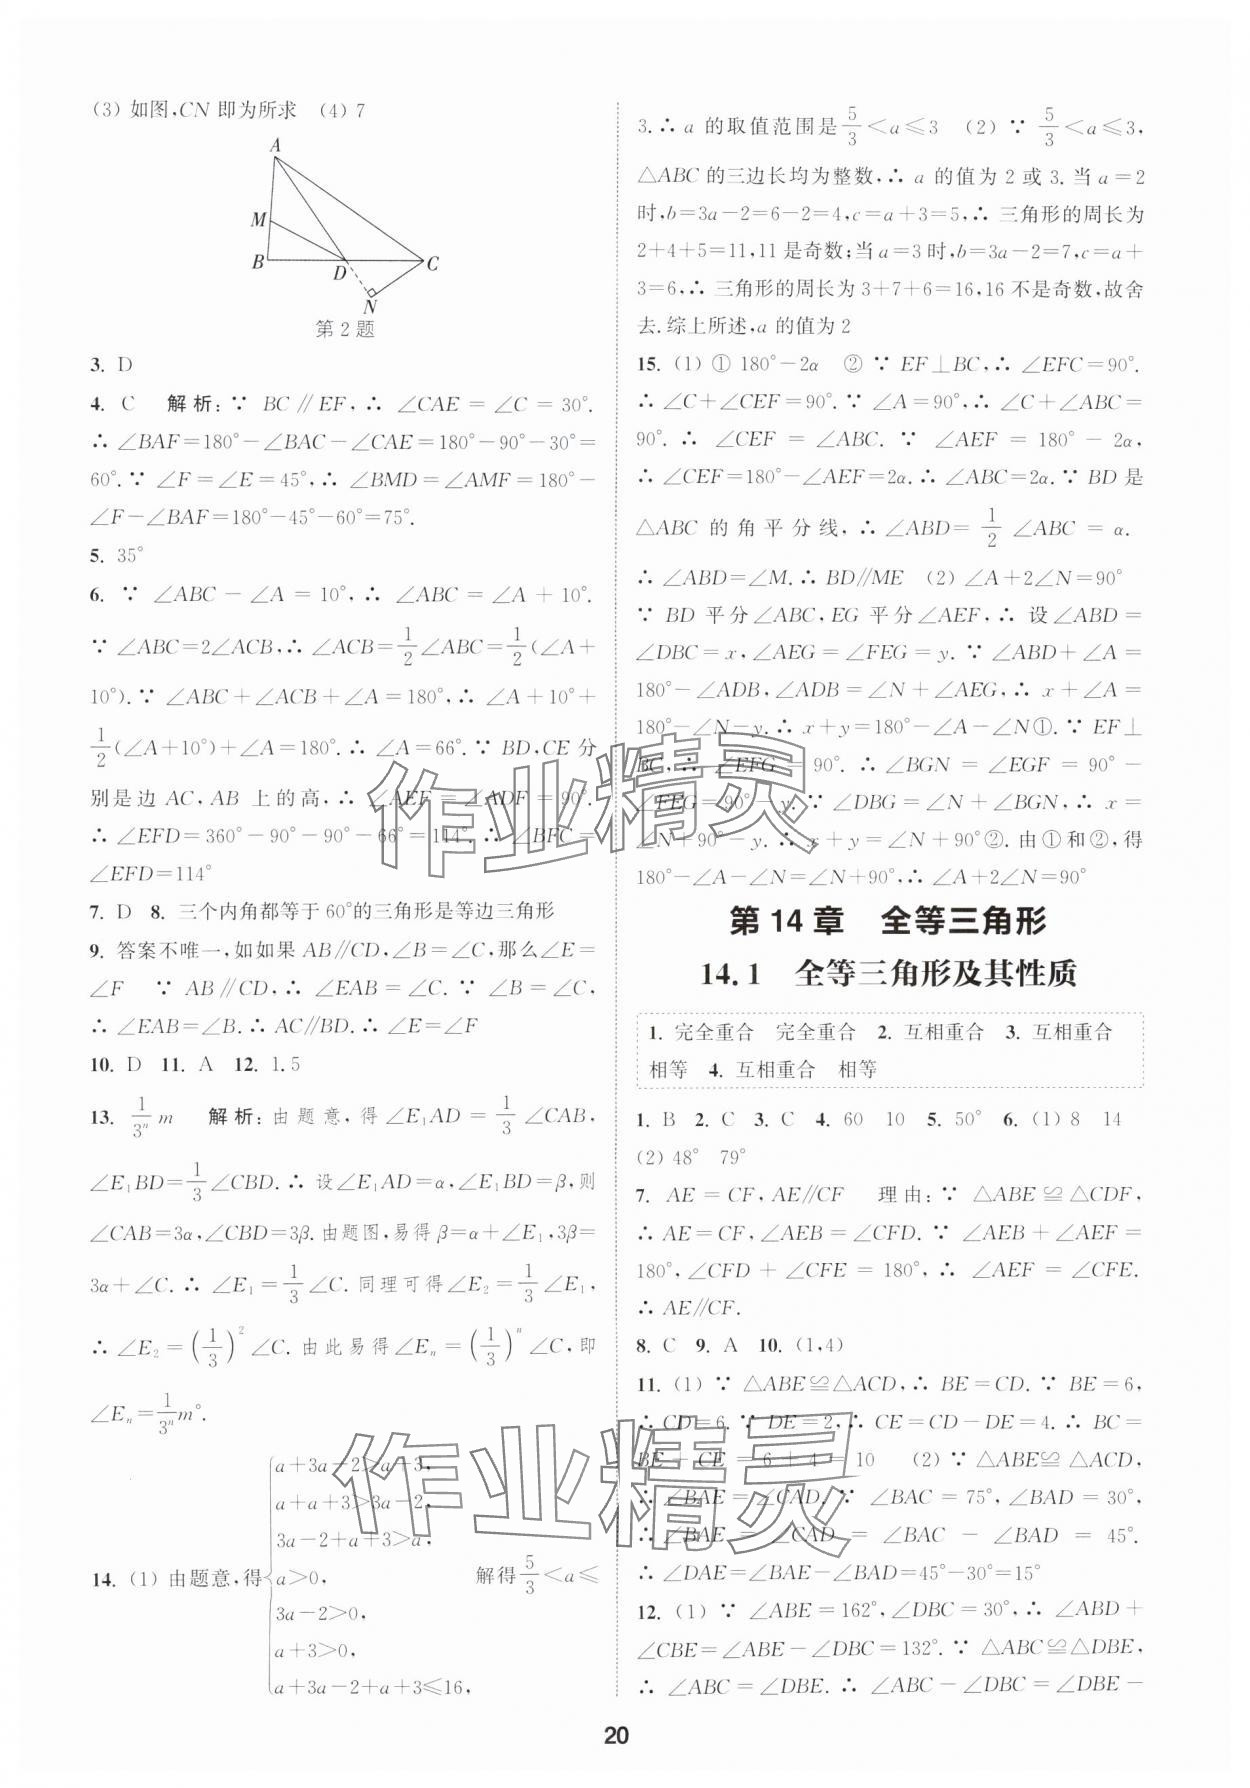 (3) 如图,CN 即为所求 (4) 7
A
M
B
D
C
N
第 2 题
3. D
4. C 解析:∵ BC∥EF,∴ ∠CAE=∠C=30°.
∴ ∠BAF=180°-∠BAC-∠CAE=180°-90°-30°=
60°.∵ ∠F=∠E=45°,∴ ∠BMD=∠AMF=180°-
∠F-∠BAF=180°-45°-60°=75°.
5. 35°
6. ∵ ∠ABC-∠A=10°,∴ ∠ABC=∠A+10°.
∵ ∠ABC=2∠ACB,∴ ∠ACB=1/2∠ABC=1/2(∠A+
10°).∵ ∠ABC+∠ACB+∠A=180°,∴ ∠A+10°+
1/2(∠A+10°)+∠A=180°.∴ ∠A=66°.∵ BD,CE 分
别是边 AC,AB 上的高,∴ ∠AEF=∠ADF=90°.
∴ ∠EFD=360°-90°-90°-66°=114°.∴ ∠BFC=
∠EFD=114°
7. D 8. 三个内角都等于 60°的三角形是等边三角形
9. 答案不唯一,如如果 AB∥CD,∠B=∠C,那么∠E=
∠F ∵ AB∥CD,∴ ∠EAB=∠C.∵ ∠B=∠C,
∴ ∠EAB=∠B.∴ AC∥BD.∴ ∠E=∠F
10. D 11. A 12. 1.5
13. 1/3ⁿ m 解析:由题意,得∠E₁AD=1/3∠CAB,
∠E₁BD=1/3∠CBD.∴ 设∠E₁AD=α,∠E₁BD=β,则
∠CAB=3α,∠CBD=3β.由题图,易得β=α+∠E₁,3β=
3α+∠C.∴ ∠E₁=1/3∠C.同理可得∠E₂=1/3∠E₁,
∴ ∠E₂=(1/3)²∠C.由此易得∠Eₙ=(1/3)ⁿ∠C,即
∠Eₙ=1/3ⁿ m°.
14. (1) 由题意,得{a+3a-2>a+3,
a+a+3>3a-2,
3a-2+a+3>a,
a>0,
3a-2>0,
a+3>0,
a+3a-2+a+3≤16,
解得5/3<a≤
3.∴ a 的取值范围是5/3<a≤3 (2) ∵ 5/3<a≤3,
△ABC 的三边长均为整数,∴ a 的值为 2 或 3.当 a=2
时,b=3a-2=6-2=4,c=a+3=5,∴ 三角形的周长为
2+4+5=11,11 是奇数;当 a=3 时,b=3a-2=7,c=a+
3=6,∴ 三角形的周长为 3+7+6=16,16 不是奇数,故舍
去.综上所述,a 的值为 2
15. (1) ① 180°-2α ② ∵ EF⊥BC,∴ ∠EFC=90°.
∴ ∠C+∠CEF=90°.∵ ∠A=90°,∴ ∠C+∠ABC=
90°.∴ ∠CEF=∠ABC.∵ ∠AEF=180°-2α,
∴ ∠CEF=180°-∠AEF=2α.∴ ∠ABC=2α.∵ BD 是
△ABC 的角平分线,∴ ∠ABD=1/2∠ABC=α.
∴ ∠ABD=∠M.∴ BD∥ME (2) ∠A+2∠N=90°
∵ BD 平分∠ABC,EG 平分∠AEF,∴ 设∠ABD=
∠DBC=x,∠AEG=∠FEG=y.∵ ∠ABD+∠A=
180°-∠ADB,∠ADB=∠N+∠AEG,∴ x+∠A=
180°-∠N-y.∴ x+y=180°-∠A-∠N①.∵ EF⊥
BC,∴ ∠EFG=90°.∴ ∠BGN=∠EGF=90°-
∠FEG=90°-y.∵ ∠DBG=∠N+∠BGN,∴ x=
∠N+90°-y.∴ x+y=∠N+90°②.由①和②,得
180°-∠A-∠N=∠N+90°,∴ ∠A+2∠N=90°
第 14 章 全等三角形
14.1 全等三角形及其性质
1. 完全重合 完全重合 2. 互相重合 3. 互相重合
相等 4. 互相重合 相等
1. B 2. C 3. C 4. 60 10 5. 50° 6. (1) 8 14
(2) 48° 79°
7. AE=CF,AE∥CF 理由:∵ △ABE≌△CDF,
∴ AE=CF,∠AEB=∠CFD.∵ ∠AEB+∠AEF=
180°,∠CFD+∠CFE=180°,∴ ∠AEF=∠CFE.
∴ AE∥CF.
8. C 9. A 10. (1,4)
11. (1) ∵ △ABE≌△ACD,∴ BE=CD.∵ BE=6,
∴ CD=6.∵ DE=2,∴ CE=CD-DE=4.∴ BC=
BE+CE=6+4=10 (2) ∵ △ABE≌△ACD,
∴ ∠BAE=∠CAD.∵ ∠BAC=75°,∠BAD=30°,
∴ ∠BAE=∠CAD=∠BAC-∠BAD=45°.
∴ ∠DAE=∠BAE-∠BAD=45°-30°=15°
12. (1) ∵ ∠ABE=162°,∠DBC=30°,∴ ∠ABD+
∠CBE=∠ABE-∠DBC=132°.∵ △ABC≌△DBE,
∴ ∠ABC=∠DBE.∴ ∠ABC-∠DBC=∠DBE-
20
作业精灵
作业精灵